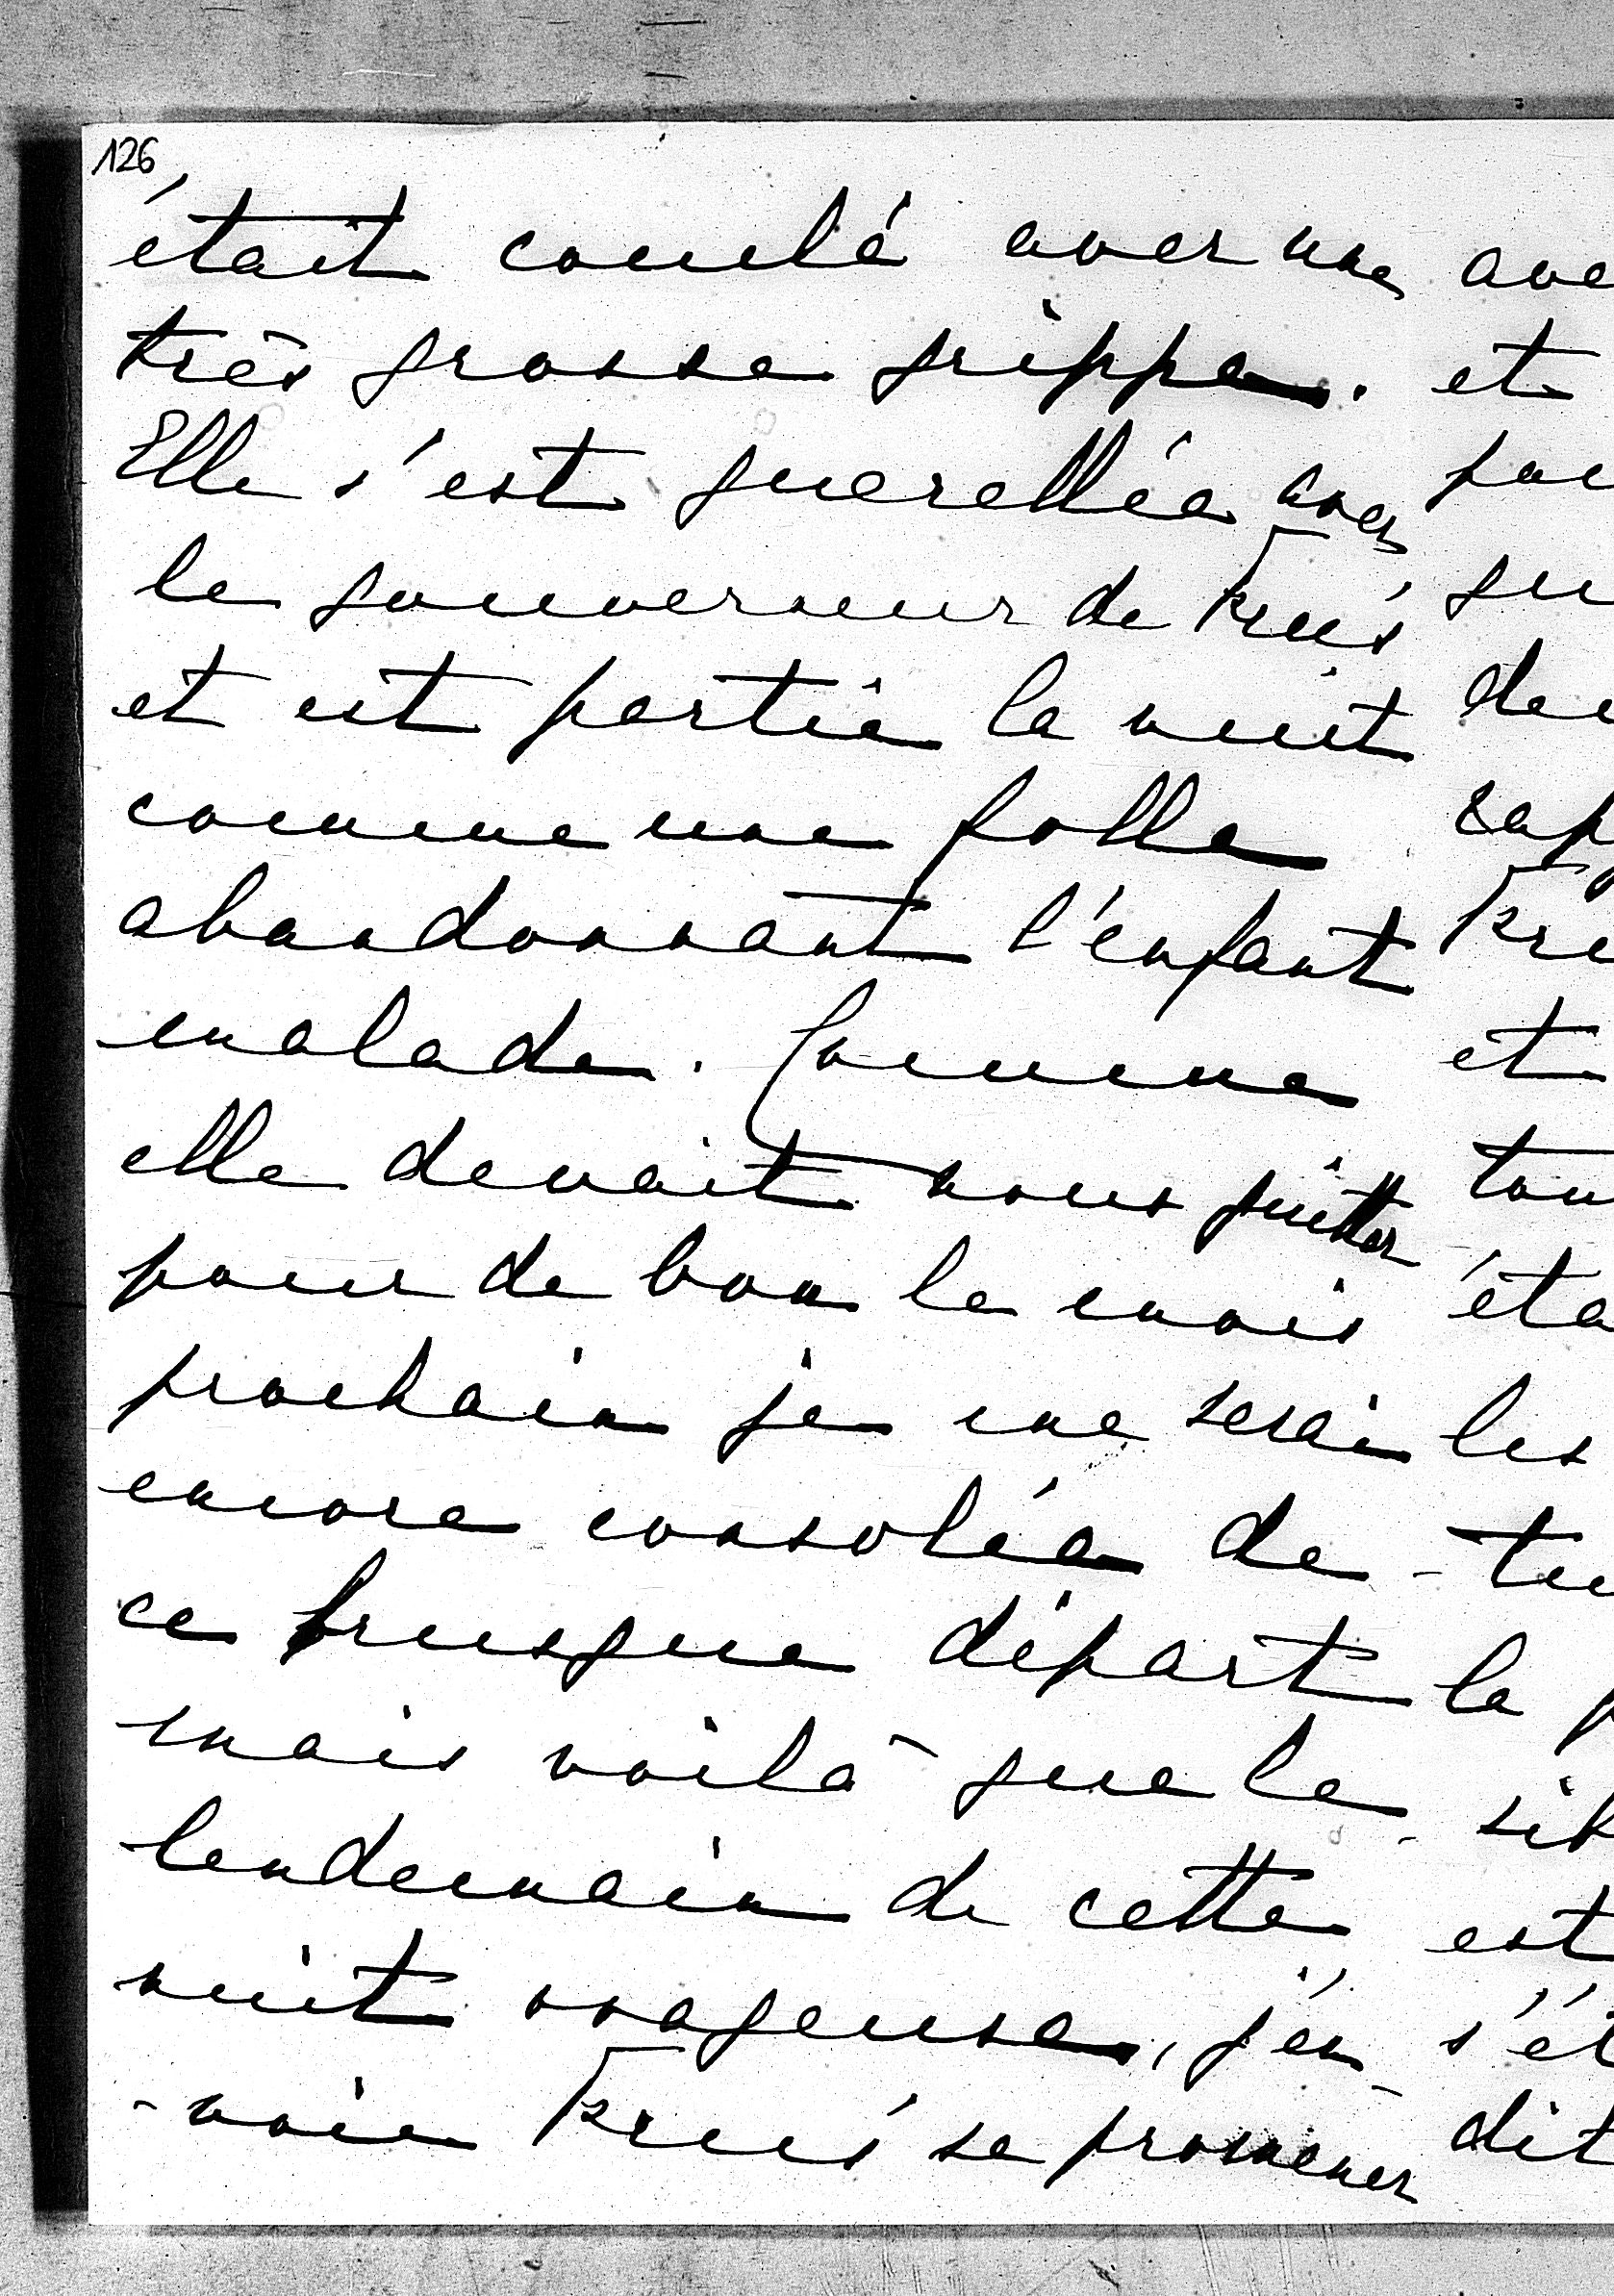 126
était couché avec une
très grosse grippe.
Elle s'est querellée avec
le gouverneur de
et est partie la nuit
comme une folle
abandonnant l'enfant
malade. Comme
elle devait nous quitter
pour de bon le mois
prochain je me serai
encore consolée de
ce brusque départ
mais voilà que le
lendemain de cette
nuit orageuse, j'en
-voie se promener
ave
et
pou
qu
de
rap
et
tou
éta
les
la
est
s'ét
dit